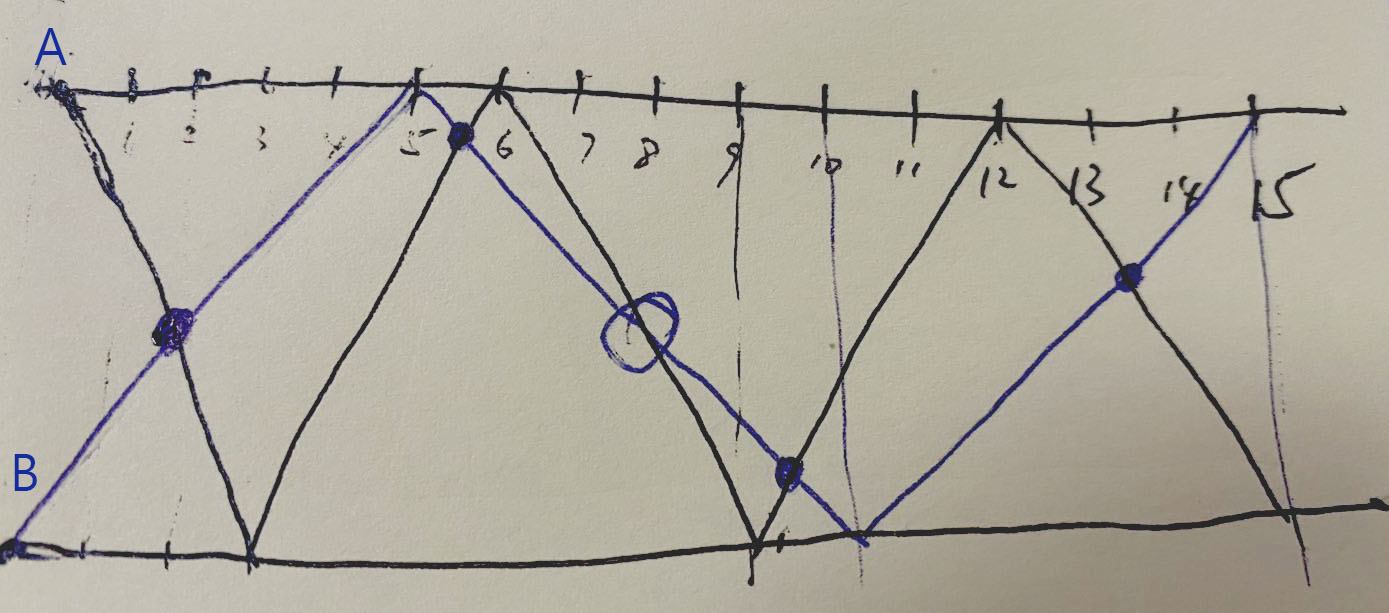 A
1 2 3 4 5 6 7 8 9 10 11 12 13 14 15
B